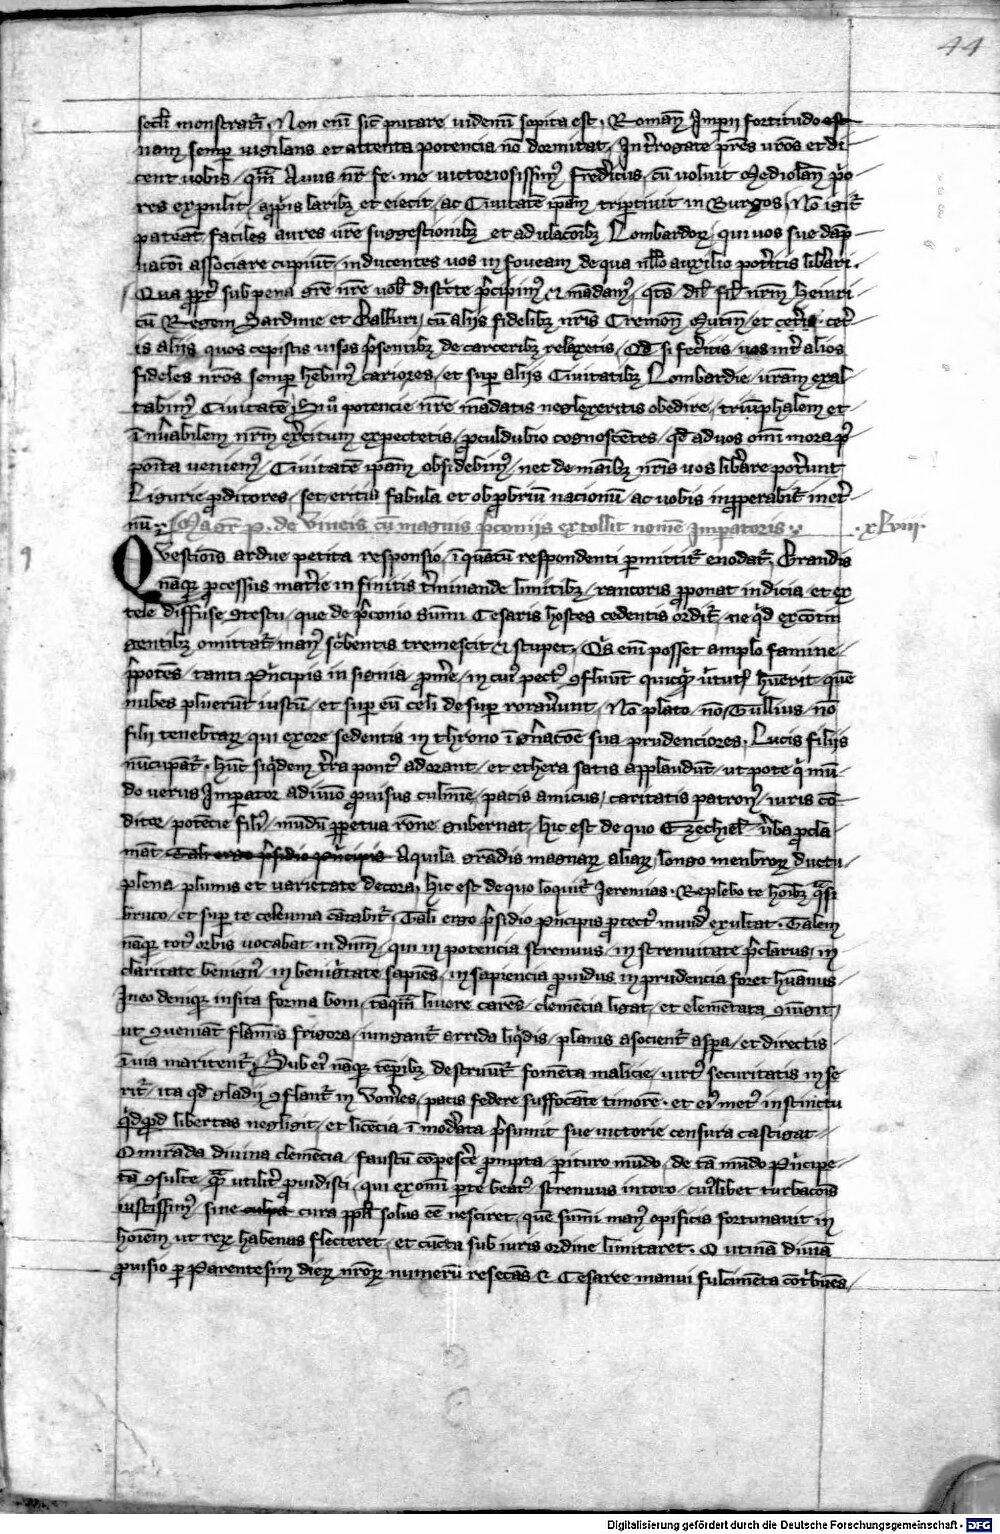 44
secli monstrari. Non eni sic putare videmur sopita est. Romani Imperii fortitudo
nam semper vigilans et attenta potencia no dormitat. Interrogate patres vros et di
cent vobis, qm Avus nr fe. me. victoriosissimus Fredericus, cu voluit Mediolan prio
res expulit a propriis laribus et eiecit, ac Civitate ipam tripartivit in Burgos. No igitur
pateant faciles aures vre suggestionibus et adulacoibus Lombardorum, qui vos sue dap
nacoi associare cupiunt, inducentes vos in foveam de qua nullo auxilio poteritis liberari.
Qua propter sub pena gre nre vobis districte precipimus et mandamus, qtenus dil. fil. nrm Henri
cu Regem Sardinie et Galluri, cu aliis fidelibus nris Cremon. Mutin. et ceteris. ceter
is aliis quos cepistis visis presentibus de carceribus relaxetis. Qd si feceritis, vos inter alios
fideles nros semper habebimus cariores, et super aliis Civitatibus Lombardie, vram exal
tabimus Civitate. Si vero potencie nre mandatis neglexeritis obedire, triumphalem et
inumerabilem nrm exercitum expectetis, proculdubio cognoscentes, qd ad vos omni mora post
posita veniemus, Civitatem ipam obsidebimus, nec de manibus nris vos liberare poterunt
Ligurie proditores, set eritis fabula et obprobrium nacionum ac vobis improperabitur in eter
num. Magr P. de Vineis cu magnis preconiis extollit nome Imperatoris. .xlviii.
Questionis ardue petita responsio, in quantum respondenti permittitur enodatur. Grandis
namque processus materie infinitis terminande limitibus, rancoris proponat indicia, et ex
tele diffuse contextu, que de preconio summi Cesaris hostes cedentis orditur, ne quid ex contin
gentibus omittatur manus scribentis tremescit et stupet. Quis eni posset amplo famine
prepotens, tanti Principis insignia promere, in cuius pectus confluunt quicquid virtutis habuerit quem
nubes pluerunt iustum, et super eum celi desuper roraverunt. No Plato, no Tullius, no
filii tenebrarum qui ex ore sedentis in throno in generacoe sua prudenciores. Lucis filiis
nuncupatur. Hunc siquidem terra pontus adorant, et ethera satis applaudunt, ut pote qui mun
do verus Imperator a divino provisus culmine, pacis amicus, caritatis patronus, iuris con
ditor, potencie filius, mundum perpetua racone gubernat, hic est de quo Ezechiel verba procla
mat Tali ergo presidio principis Aquila grandis magnarum alarum, longo menbrorum ductu,
plena plumis et varietate decora, hic est de quo loquitur Jeremias. Replebo te hominibus quasi
bruco, et super te celeuma cantabitur. Tali ergo presidio principis protectus mundus exultat. Talem
namque totus orbis vocabat in dominum, qui in potencia strenuus, in strenuitate preclarus, in
claritate benignus, in benignitate sapiens, in sapiencia providus in prudencia foret humanus.
In eo denique insita forma boni, tanquam livore carens, clemencia ligat, et elementata coniungit,
ut conveniant flammis frigora, iungantur arrida liquidis, planis asocientur aspera, et directis
invia maritentur. Sub eius namque temporibus destruuntur fomenta malicie, virtus securitatis inse
ritur, ita qd gladii conflantur in vomeres, pacis federe suffocante timorem. et eius metus instinctu
quicquid libertas negligit, et licencia immoderata presumit sue victorie censura castigat.
O miranda divina clemencia, faustum compescere prompta, perituro mundo, de tam mundo Principe
tam consulte, quam utiliter providisti, qui ex omni parte beatus strenuus in toto, cuiuslibet turbacois
iustissimus, sine culpa cura populi solus esse nesciret, quem summi manus opificis fortunavit in
hominem ut rerum habenas flecteret, et cuncta sub iuris ordine limitaret. O utinam divina
provisio per Parentesim dierum nrorum numerum resecans et Cesaree manui fulcimenta contribuens,
Digitalisierung gefördert durch die Deutsche Forschungsgemeinschaft - DFG